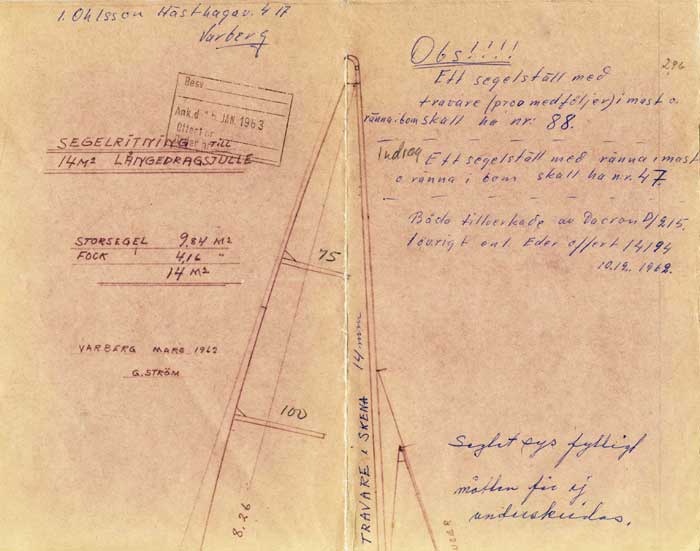 I. Ohlsson Hästhagav. 4 17
Varberg
Besv.
Ank.d. 15 JAN. 1963
Offert nr
Order nr
SEGELRITNING TILL
14 M² LÅNGEDRAGSJULLE
STORSEGEL 9,84 M²
FOCK 4,16 "
14 M²
VARBERG MARS 1962
G. STRÖM
75
100
8,26
TRAVARE i SKENA 14 mm
Obs!!!!
296
Ett segelställ med
travare (prov medföljer) i mast o.
ränna i bom skall ha nr: 88.
Indrag
Ett segelställ med ränna i mast
o ränna i bom skall ha nr. 47.
Båda tillverkade av Dacron D/215.
I övrigt enl. Eder offert 14194
10.12. 1962.
Seglet sys fylligt
måtten får ej
underskridas.